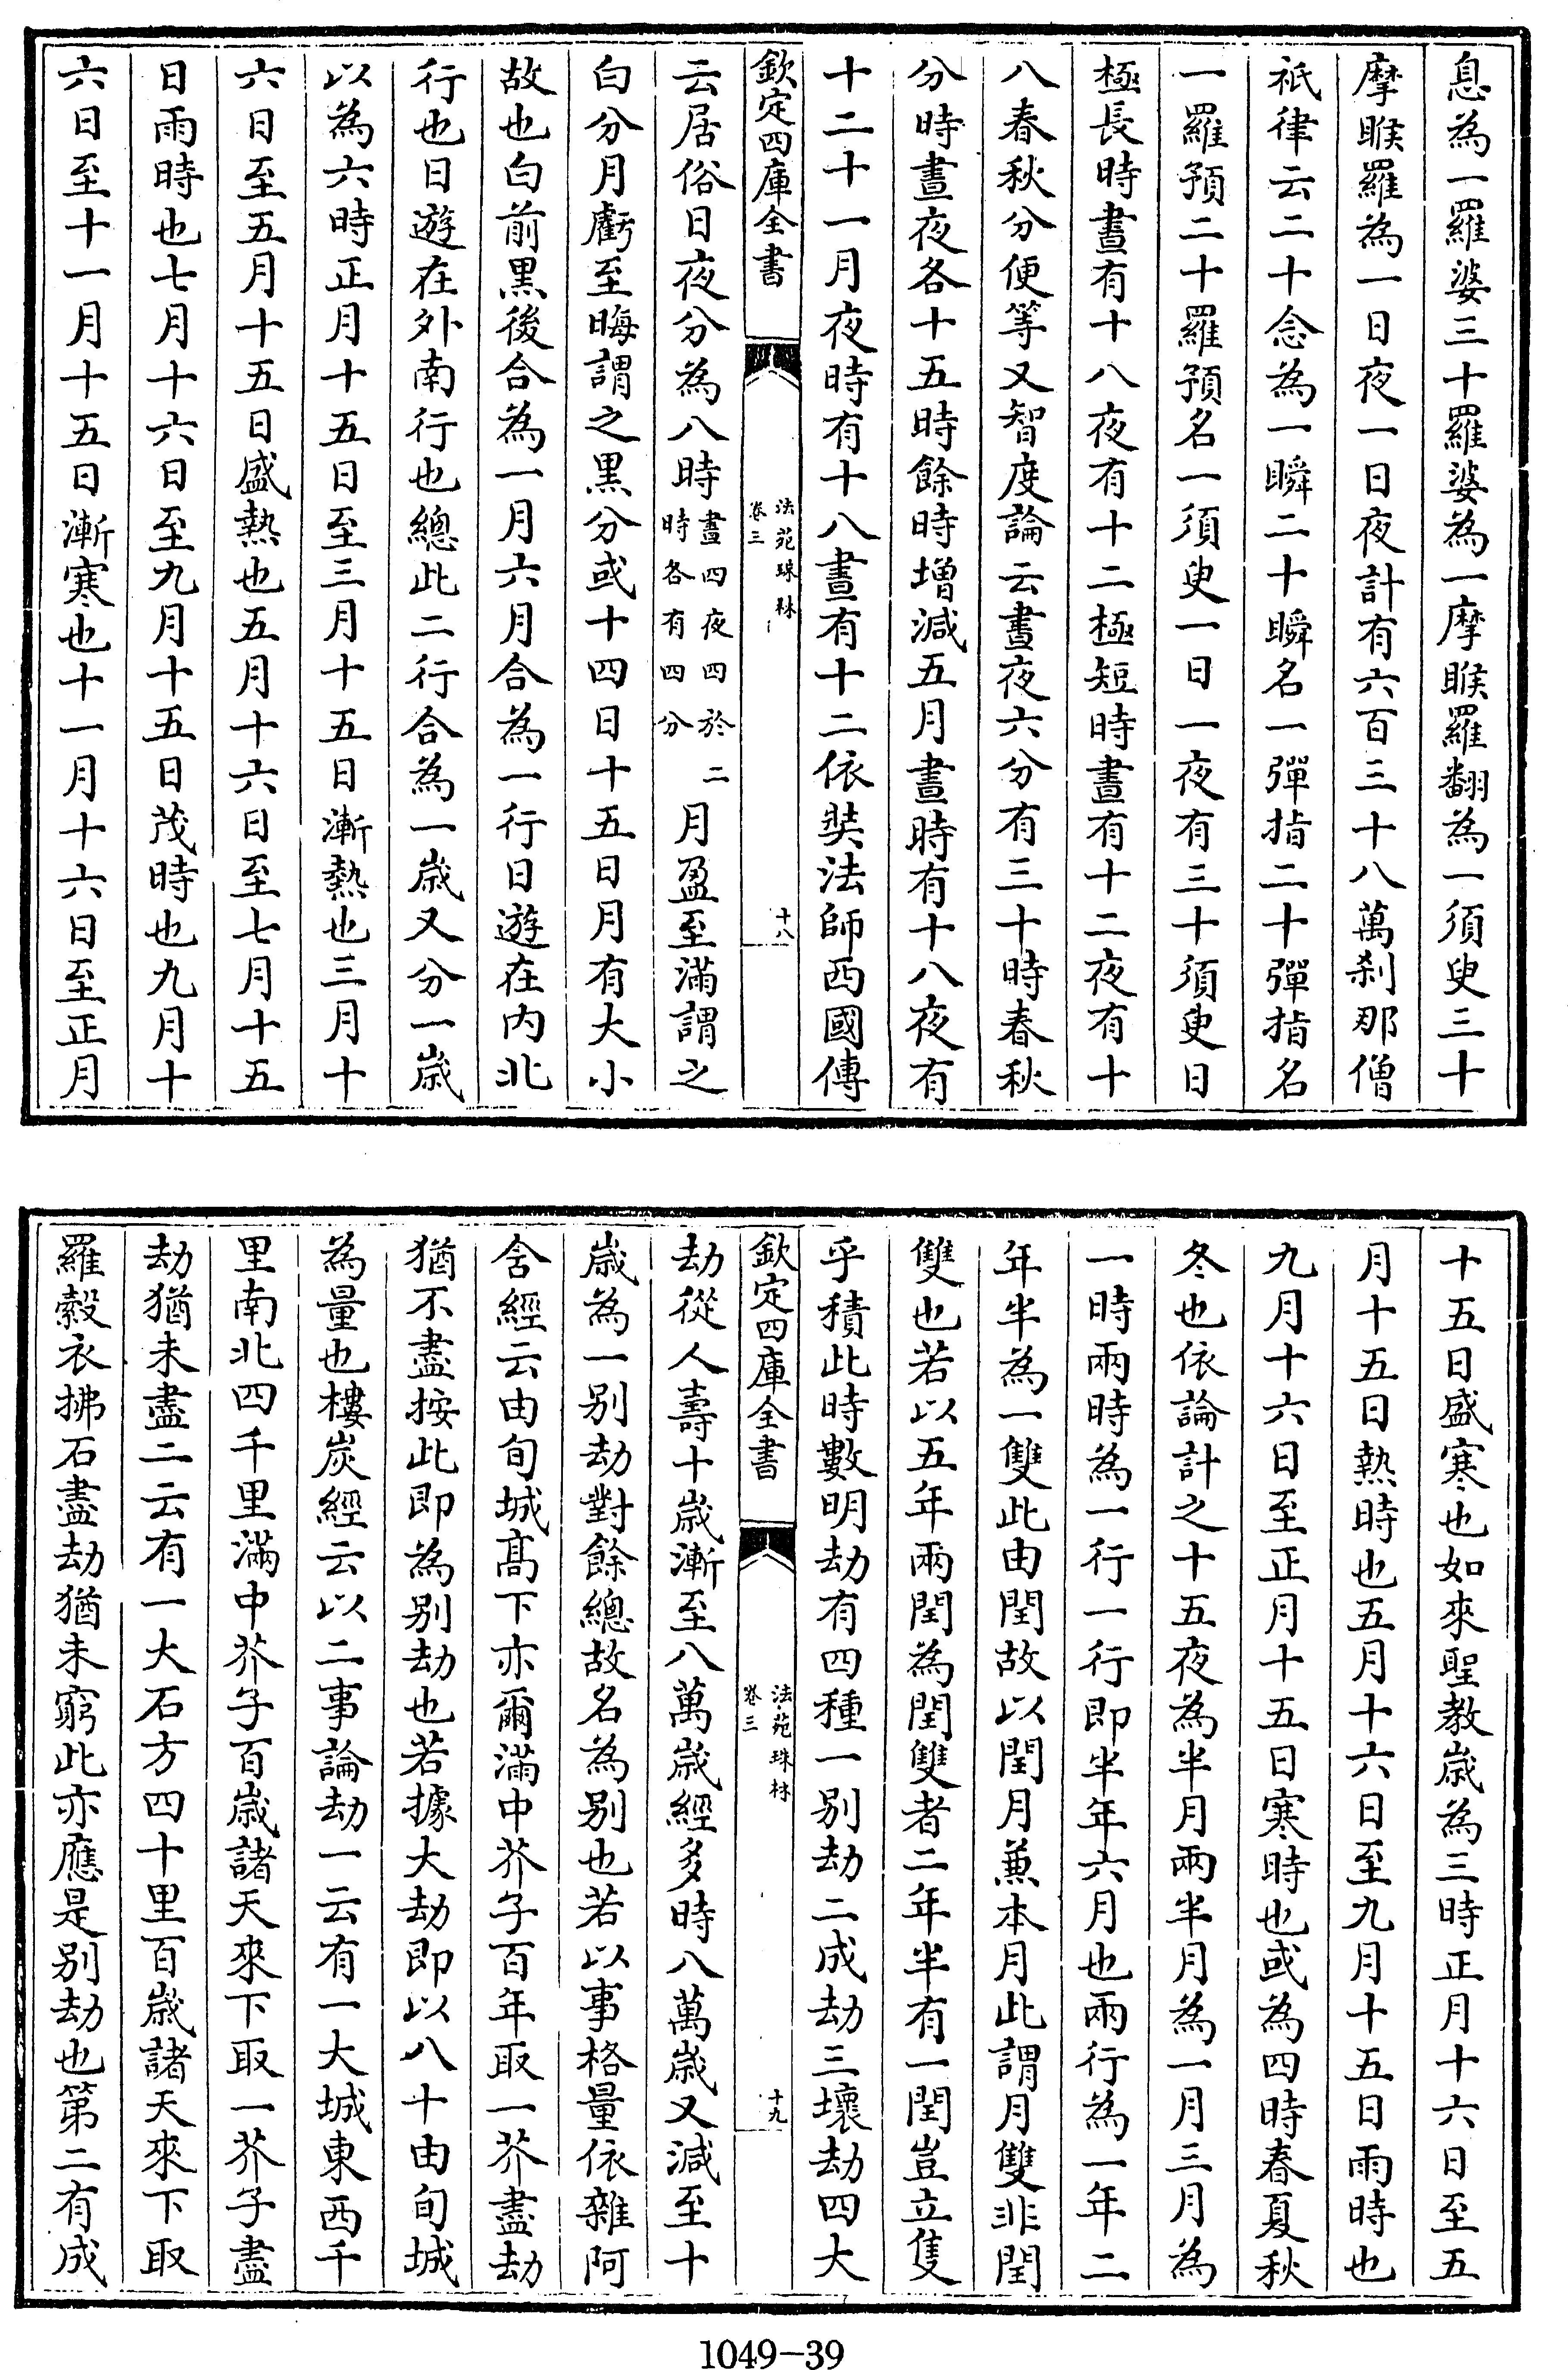 息為一羅婆三十羅婆為一摩睺羅翻為一須臾三十
摩睺羅為一日夜一日夜計有六百三十八萬刹那僧
祇律云二十念為一瞬二十瞬名一彈指二十彈指名
一羅預二十羅預名一須臾一日一夜有三十須臾日
極長時晝有十八夜有十二極短時晝有十二夜有十
八春秋分便等又智度論云晝夜六分有三十時春秋
分時晝夜各十五時餘時增減五月晝時有十八夜有
十二十一月夜時有十八晝有十二依奘法師西國傳
欽定四庫全書
法苑珠林
卷三
十八
云居俗日夜分為八時晝四夜四於二時各有四分月盈至滿謂之
白分月虧至晦謂之黑分或十四日十五日月有大小
故也白前黑後合為一月六月合為一行日遊在内北
行也日遊在外南行也總此二行合為一歲又分一歲
以為六時正月十五日至三月十五日漸熱也三月十
六日至五月十五日盛熱也五月十六日至七月十五
日雨時也七月十六日至九月十五日茂時也九月十
六日至十一月十五日漸寒也十一月十六日至正月
十五日盛寒也如來聖教歲為三時正月十六日至五
月十五日熱時也五月十六日至九月十五日雨時也
九月十六日至正月十五日寒時也或為四時春夏秋
冬也依論計之十五夜為半月兩半月為一月三月為
一時兩時為一行一行即半年六月也兩行為一年二
年半為一雙此由閏故以閏月兼本月此謂月雙非閏
雙也若以五年兩閏為閏雙者二年半有一閏豈立隻
乎積此時數明劫有四種一别劫二成劫三壞劫四大
欽定四庫全書
法苑珠林
卷三
十九
劫從人壽十歲漸至八萬歲經多時八萬歲又減至十
歲為一别劫對餘總故名為别也若以事格量依雜阿
含經云由旬城高下亦爾滿中芥子百年取一芥盡劫
猶不盡按此即為别劫也若據大劫即以八十由旬城
為量也樓炭經云以二事論劫一云有一大城東西千
里南北四千里滿中芥子百歲諸天來下取一芥子盡
劫猶未盡二云有一大石方四十里百歲諸天來下取
羅縠衣拂石盡劫猶未窮此亦應是别劫也第二有成
1049-39